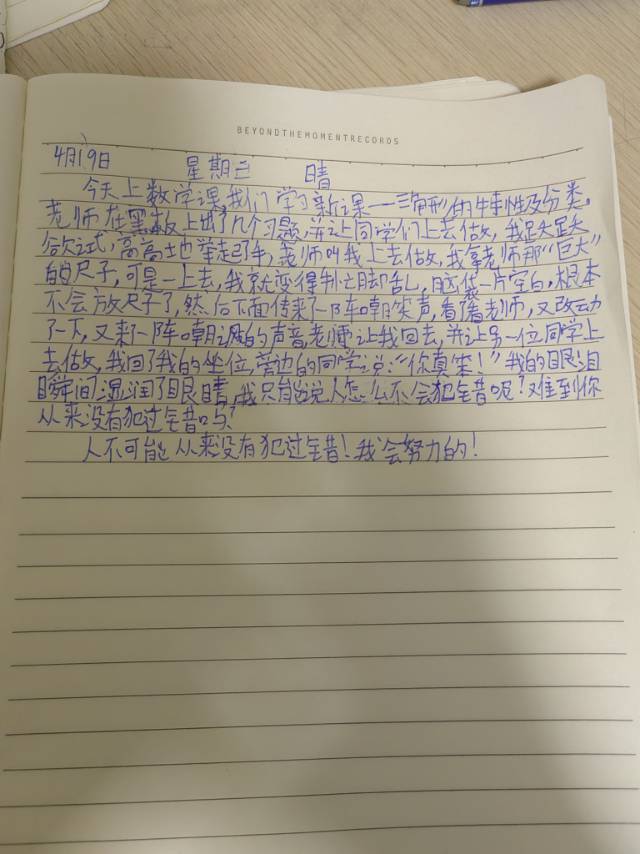 BEYONDTHEMOMENTRECORDS
4月19日 星期三 晴
今天上数学课,我们学习新课——三角形的特性及分类,
老师在黑板上出了几个习题,并让同学们上去做,我跃跃
欲试,高高地举起了手,老师叫我上去做,我拿老师那“巨大”
的尺子,可是一上去,我就变得手忙脚乱,脑袋一片空白,根本
不会放尺子了,然后下面传来了一阵嘲笑声,看了看老师,又改动
了一下,又来了一阵嘲讽的声音,老师让我回去,并让另一位同学上
去做,我回了我的坐位,旁边的同学说:“你真笨!”我的眼泪
瞬间湿润了眼睛,我只能说人怎么不会犯错呢?难到你
从来没有犯过错吗?
人不可能从来没有犯过错!我会努力的!